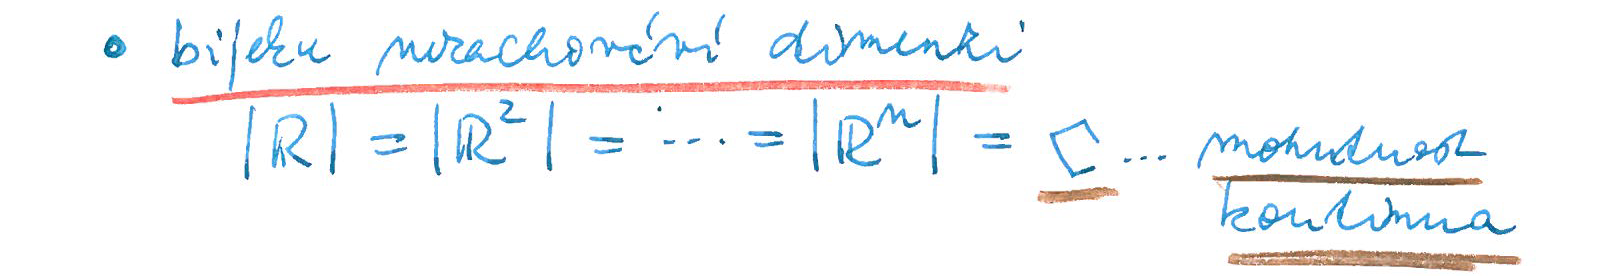 • bijekce nezachovává dimenzi
|ℝ| = |ℝ²| = ... = |ℝⁿ| = 𝔠 ... mohutnost
kontinua